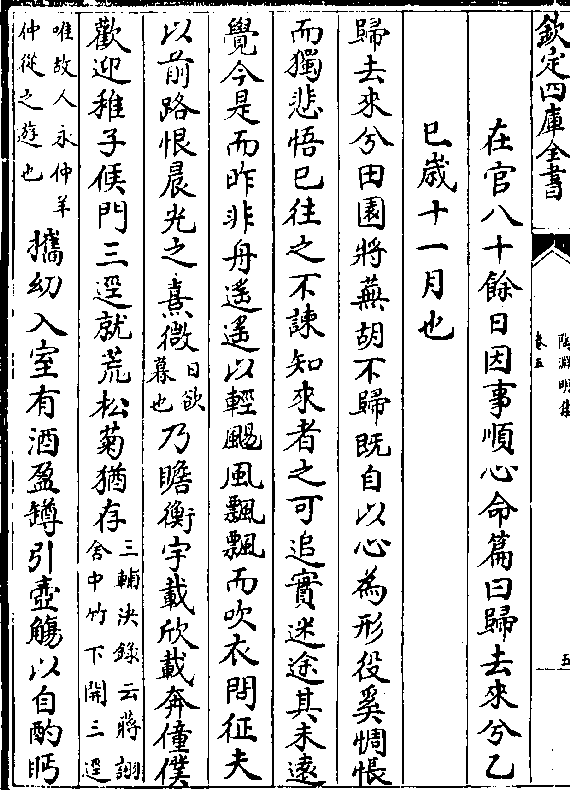 欽定四庫全書
陶淵明集
卷五
五
在官八十餘日因事順心命篇曰歸去來兮乙
巳歳十一月也
歸去來兮田園將蕪胡不歸既自以心為形役奚惆悵
而獨悲悟已往之不諫知來者之可追實迷途其未遠
覺今是而昨非舟遥遥以輕颺風飄飄而吹衣問征夫
以前路恨晨光之熹微日欲暮也乃瞻衡宇載欣載奔僮僕
歡迎稚子候門三逕就荒松菊猶存三輔決錄云蔣詡舍中竹下開三逕
唯故人求仲羊仲從之遊也攜幼入室有酒盈罇引壺觴以自酌眄